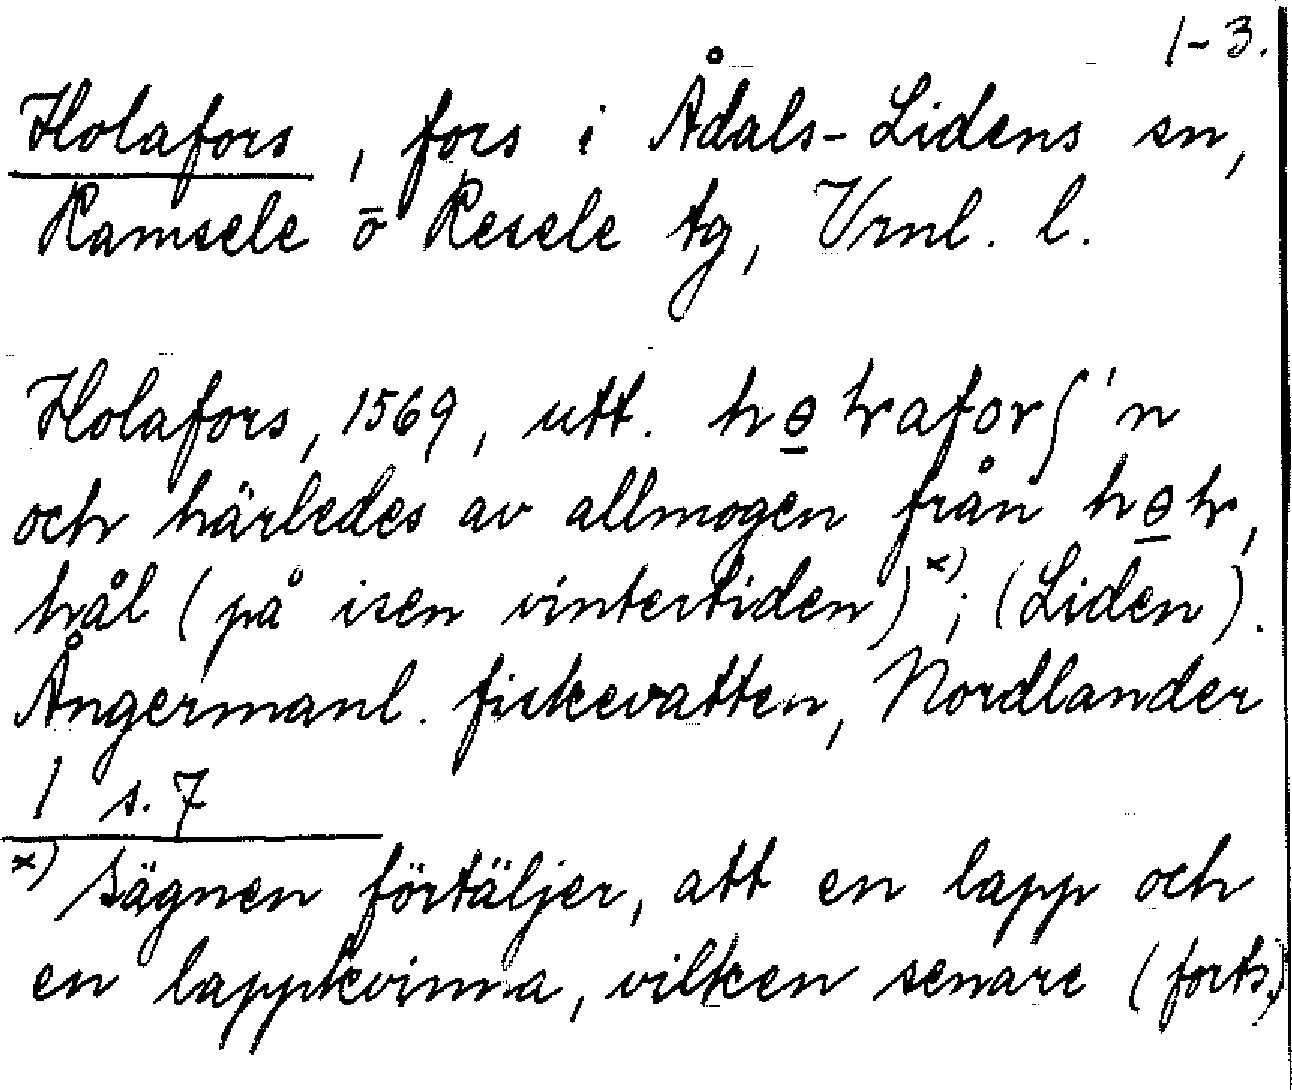 1-3.
Holafors, fors i Ådals-Lidens sn,
Ramsele o Resele tg, Vrnl. l.
Holafors, 1569, utt.
och härledes av allmogen från
hål (på isen vintertiden)x); (Liden).
Ångermanl. fiskevatten, Nordlander
1 s. 7
x) Sägnen förtäljer, att en lapp och
en lappkvinna, vilken senare (forts.)